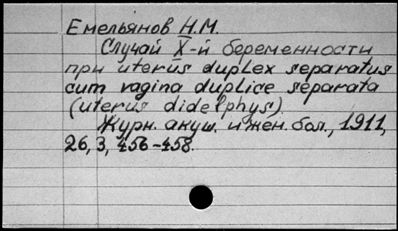 Емельянов Н.М.
Случай X-й беременности
при uterus duplex separatus
cum vagina duplice separata
(uterus didelphys).
Журн. акуш. и жен. бол., 1911,
26, 3, 456-458.